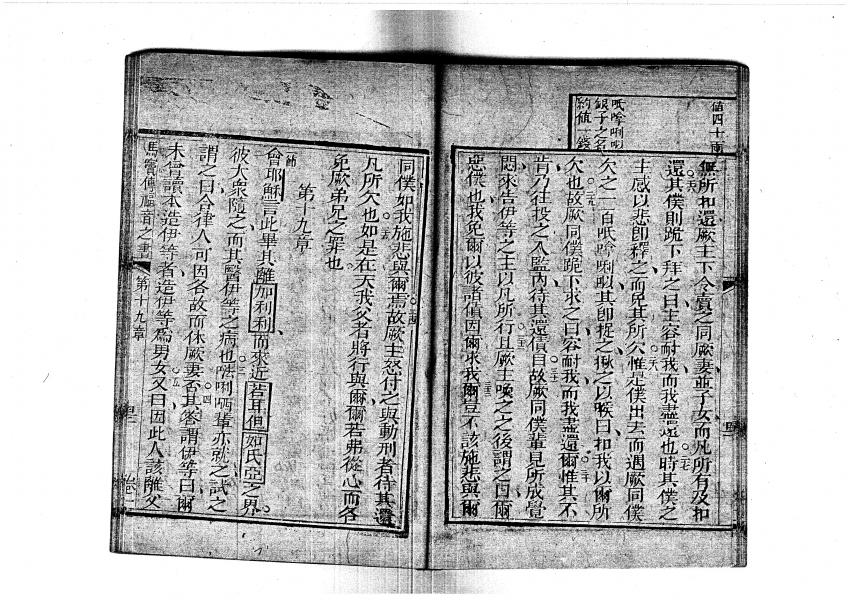 值四十両
呧哈唎㕸
銀子之名
約值一錢
無所扣還厥主下令賣之同厥妻並子女而凡所有及扣
還其僕則跪下拜之曰主容耐我而我盡還也時其僕之
主感以悲卽釋之而免其所欠惟是僕出去而遇厥同僕
欠之一百呧哈唎㕸其卽捉之揪之以喉曰扣我以爾所
欠也故厥同僕跪下求之曰容耐我而我盡還爾惟其不
肯乃往投之入監內待其還債目故厥同僕輩見所成覺
悶來告伊等之主以凡所行且厥主喚之之後謂之曰爾
惡僕也我免爾以彼諸債因爾求我爾豈不該施悲與爾
同僕如我施悲與爾焉故厥主怒付之與動刑者待其還
凡所欠也如是在天我父者將行與爾爾若弗從心而各
免厥弟兄之罪也
第十九章
會耶穌言此畢其離加利利而來近若耳但如氏亞之界
彼大衆隨之而其醫伊等之病也㕸唎哂輩亦就之試之
謂之曰合律人可因各故而休厥妻否其答謂伊等曰爾
未曾讀本造伊等者造伊等爲男女又曰因此人該離父
馬竇傳福音之書
第十九章
卷一